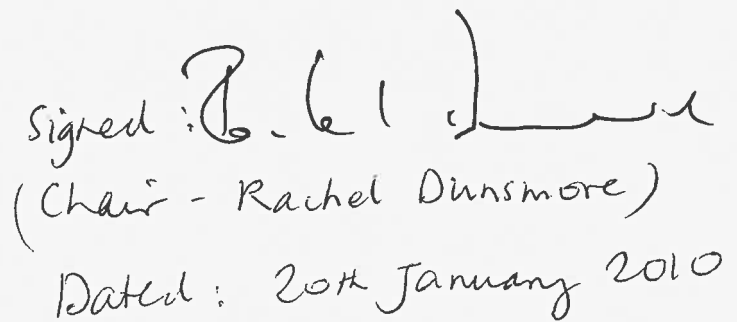 Signed :
(Chair - Rachel Dunsmore)
Dated : 20th January 2010